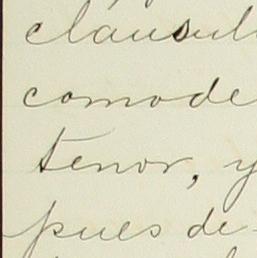 clausul
comode
tenor, y
pues de